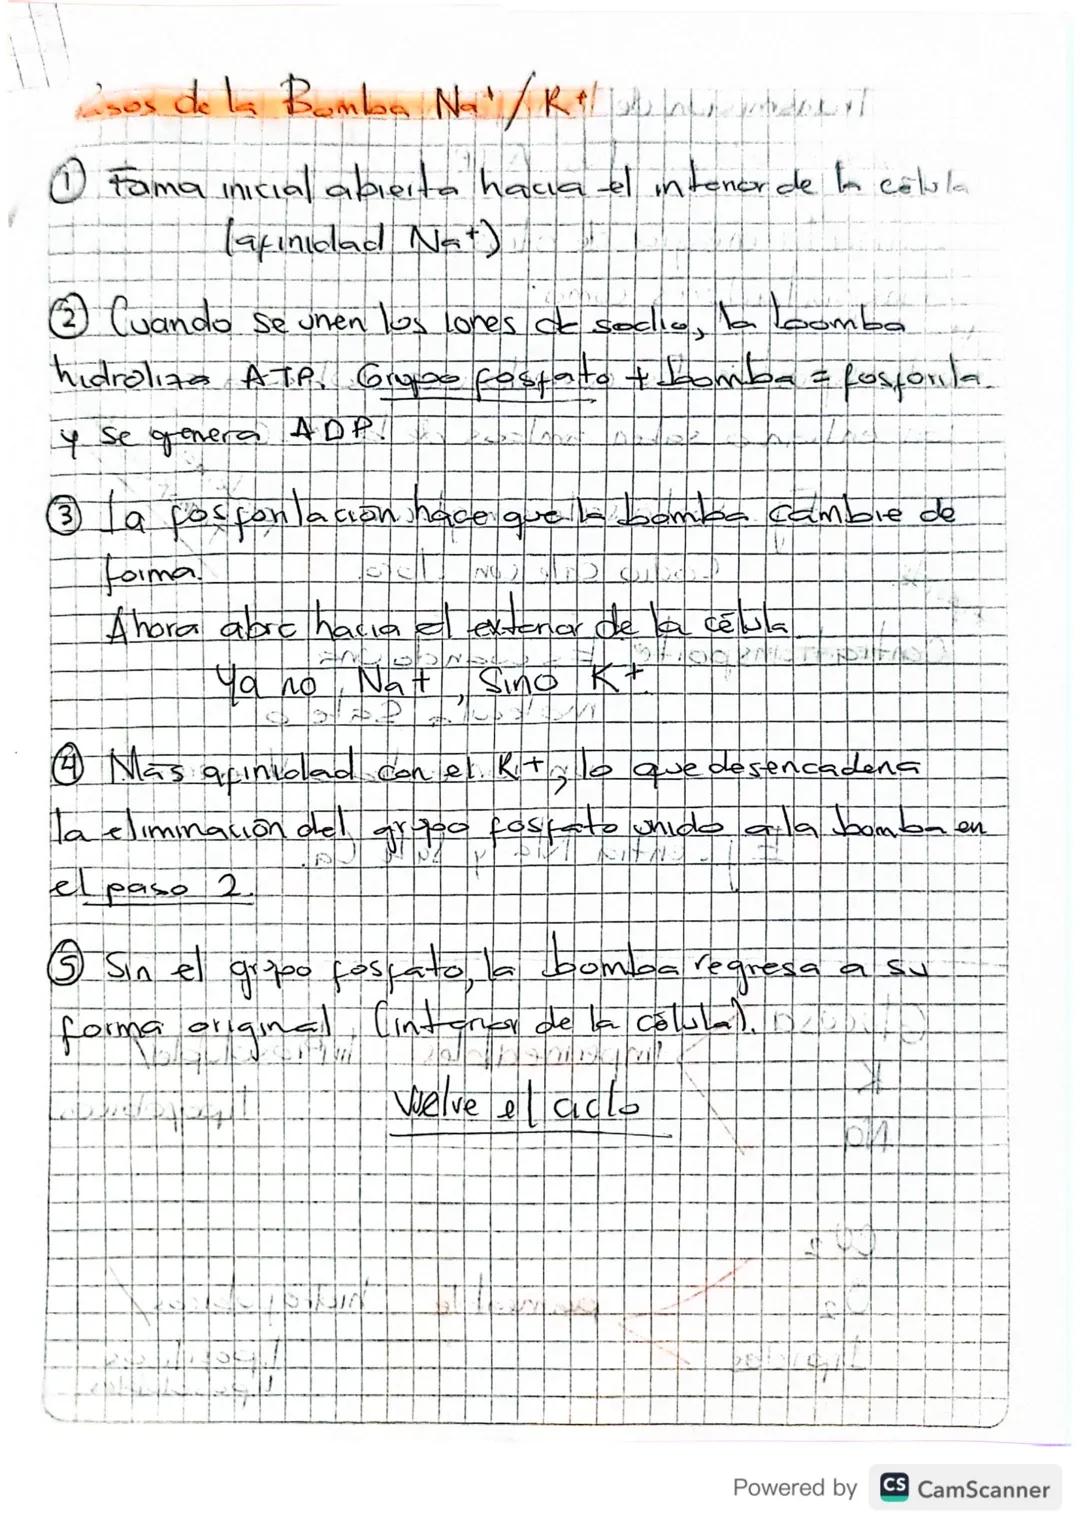 Pasos de la Bomba Na+/K+
① Forma inicial abierta hacia el interior de la célula
(afinidad Na+)
② Cuando se unen los iones de sodio, la bomba
hidroliza ATP. Grupo fosfato + bomba = fosforila
y se genera ADP.
③ La fosforilación hace que la bomba cambie de
forma.
Ahora abre hacia el exterior de la célula.
Ya no Na+, sino K+.
④ Más afinidad con el K+, lo que desencadena
la eliminación del grupo fosfato unido a la bomba en
el paso 2.
⑤ Sin el grupo fosfato, la bomba regresa a su
forma original (interior de la célula).
Vuelve el ciclo
Powered by CS CamScanner